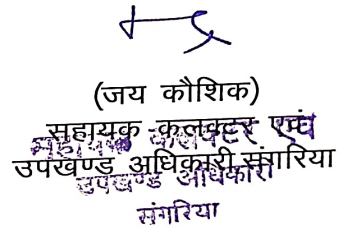 (जय कौशिक)
सहायक कलक्टर एवं
उपखण्ड अधिकारी संगरिया
सहायक कलक्टर एवं
उपखण्ड अधिकारी
संगरिया